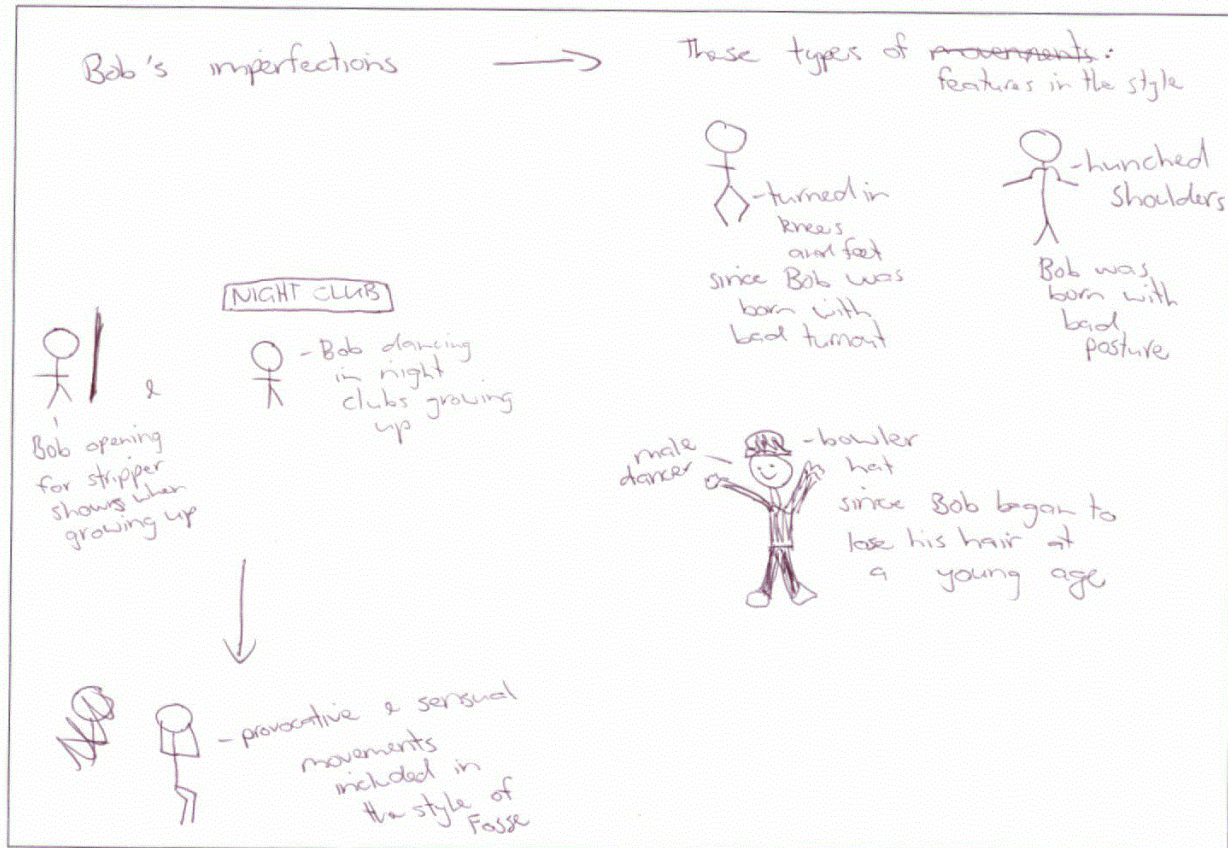 Bob's imperfections
These types of movements:
features in the style
-turned in
knees
and feet
since Bob was
born with
bad turnout
-hunched
shoulders
Bob was
born with
bad
posture
NIGHT CLUB
&
Bob opening
for stripper
shows when
growing up
-Bob dancing
in night
clubs growing
up
male
dancer
-bowler
hat
since Bob began to
lose his hair at
a young age
-provocative & sensual
movements
included in
the style of
Fosse